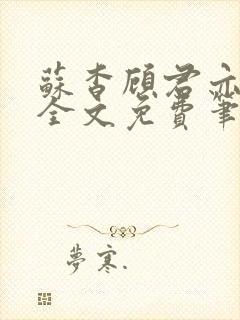 蘇杳顧君亦
全文免費筆
夢寒.